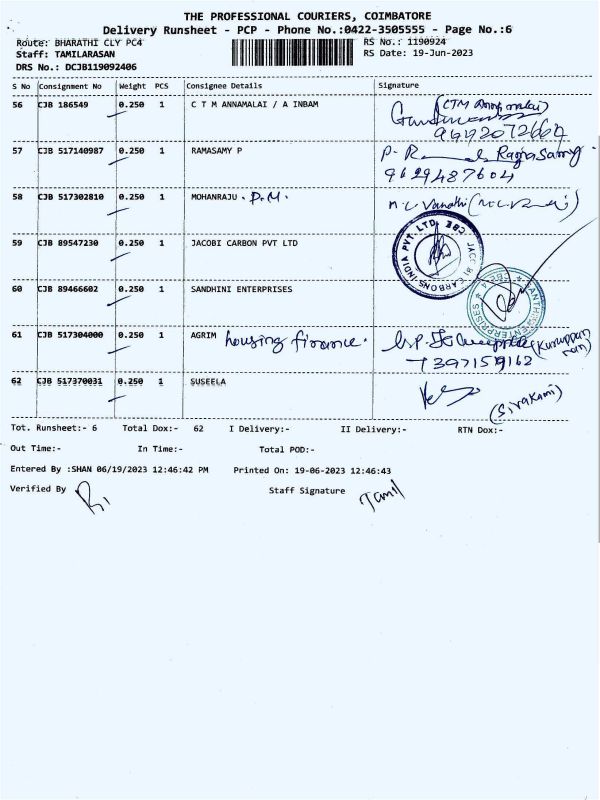 THE PROFESSIONAL COURIERS, COIMBATORE
Delivery Runsheet - PCP - Phone No.:0422-3505555 - Page No.:6
Route: BHARATHI CLY PC4 RS No.: 1190924
Staff: TAMILARASAN RS Date: 19-Jun-2023
DRS No.: DCJB119092406
S No Consignment No Weight PCS Consignee Details Signature
56 CJB 186549 0.250 1 C T M ANNAMALAI / A INBAM (CTM Annamalai)
57 CJB 517140987 0.250 1 RAMASAMY P P. R
9629487604
58 CJB 517302810 0.250 1 MOHANRAJU . P.M. M. L. Vanathi
59 CJB 89547230 0.250 1 JACOBI CARBON PVT LTD CARBONS INDIA PVT. LTD.
60 CJB 89466602 0.250 1 SANDHINI ENTERPRISES ENTERPRISES
61 CJB 517304000 0.250 1 AGRIM housing finance.
62 CJB 517370031 0.250 1 SUSEELA
(Sivakami)
Tot. Runsheet:- 6 Total Dox:- 62 I Delivery:- II Delivery:- RTN Dox:-
Out Time:- In Time:- Total POD:-
Entered By :SHAN 06/19/2023 12:46:42 PM Printed On: 19-06-2023 12:46:43
Verified By Staff Signature Tamil